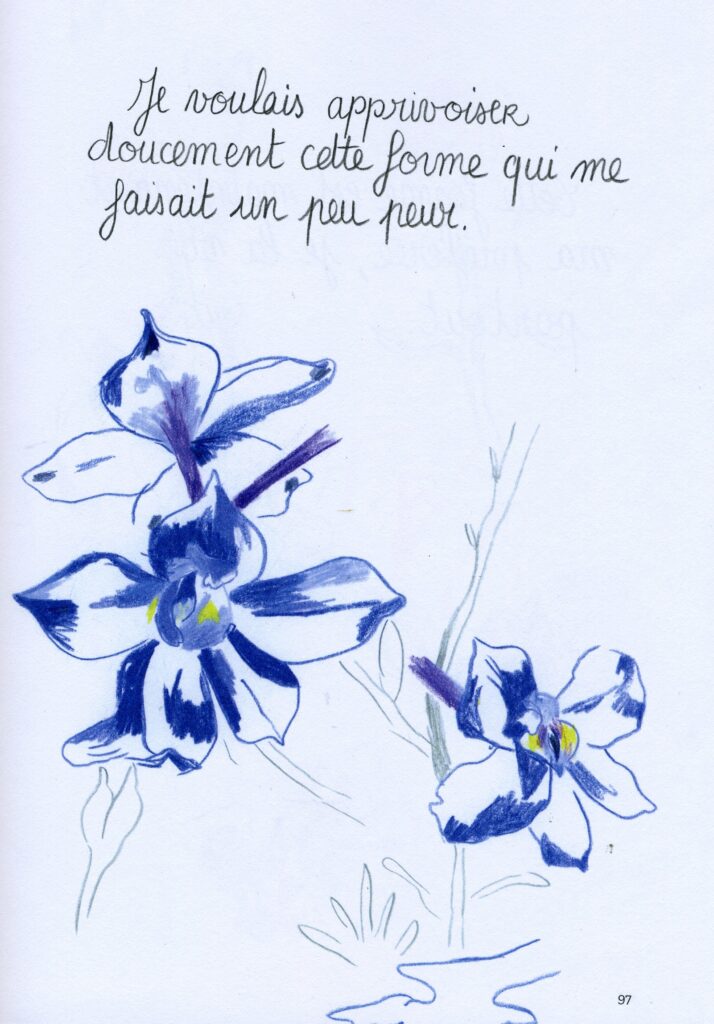 Je voulais apprivoiser
doucement cette forme qui me
faisait un peu peur.
97